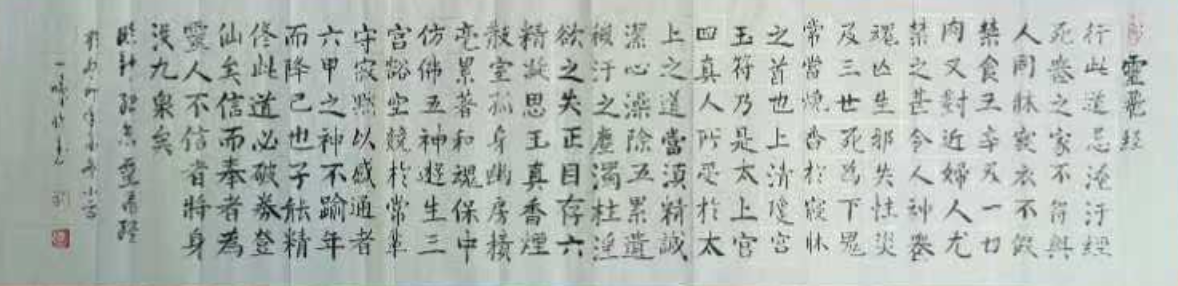 靈飛經
行此道忌淹汙經
死喪之家不得與
人同牀寢衣不假
禁食五辛及一切
肉又對近婦人尤
禁之甚令人神喪
魂亡生邪失性災
及三世死為下鬼
常當燒香於寢牀
之首也上清瓊宮
玉符乃是太上宮
四真人所受於太
上之道當須精誠
潔心澡除五累遺
穢汙之塵濁杜淫
欲之失正目存六
精凝思玉真香煙
散室孤身幽房積
毫累著和魂保中
仿佛五神遊生三
宮豁空競於常輩
守寂默以感通者
六甲之神不踰年
而降己也子能精
修此道必破券登
仙矣信而奉者為
靈人不信者將身
沒九泉矣
臨鍾紹京靈飛經